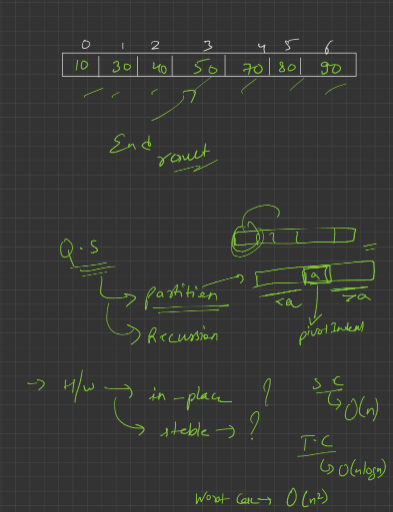 0 1 2 3 4 5 6
10 30 40 50 70 80 90
End result
Q.S
Partition
a
<a >a
Recursion
pivotIndex
→ H/W → in-place ?
S C
↳ O(n)
stable → ?
T.C
↳ O(nlogn)
Worst Case → O(n²)